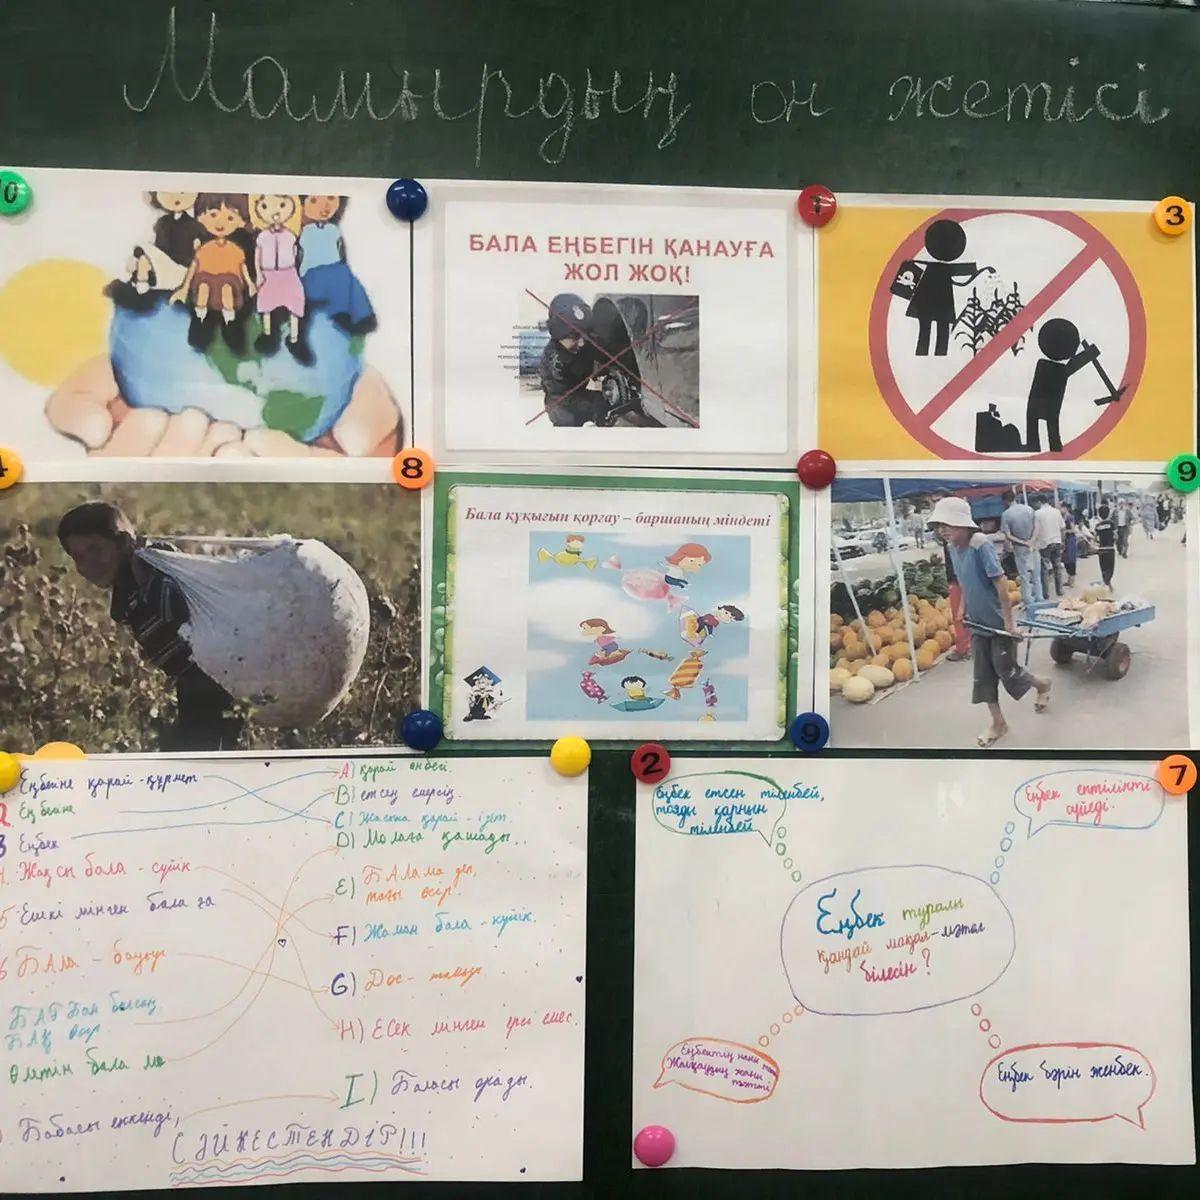 Мамырдың он жетісі
10
1
3
БАЛА ЕҢБЕГІН ҚАНАУҒА
ЖОЛ ЖОҚ!
4
8
9
Бала құқығын қорғау – баршаның міндеті
9
2
7
Еңбегіне қарай - құрмет
2 Еңбегіне
3 Еңбек
4. Жақсы бала - сүйік
5 Ешкі мінген балаға
6 БАла - бауыр
БАҒБан болсаң
БАҚ өсір
Өлетін бала
Бабасы еккенді,
A) қарай өнбегі.
B) етсең емерсің.
C) Жасына қарай - ізет.
D) Молаға қашады.
E) БАлама де,
F) Жаман бала - күйік.
G) Дос - тамыр
H) ЕСек мінген ерсі емес.
I) Баласы орады.
СӘЙКЕСТЕНДІР!!!
Еңбек етсең тіленбей,
тояды қарның
тіленбей
Еңбек ептілікті
сүйеді.
Еңбек туралы
қандай мақал-мәтел
білесің?
Еңбектің наны тәтті
Жалқаудың жаны
тәтті
Еңбек бәрін жеңбек.